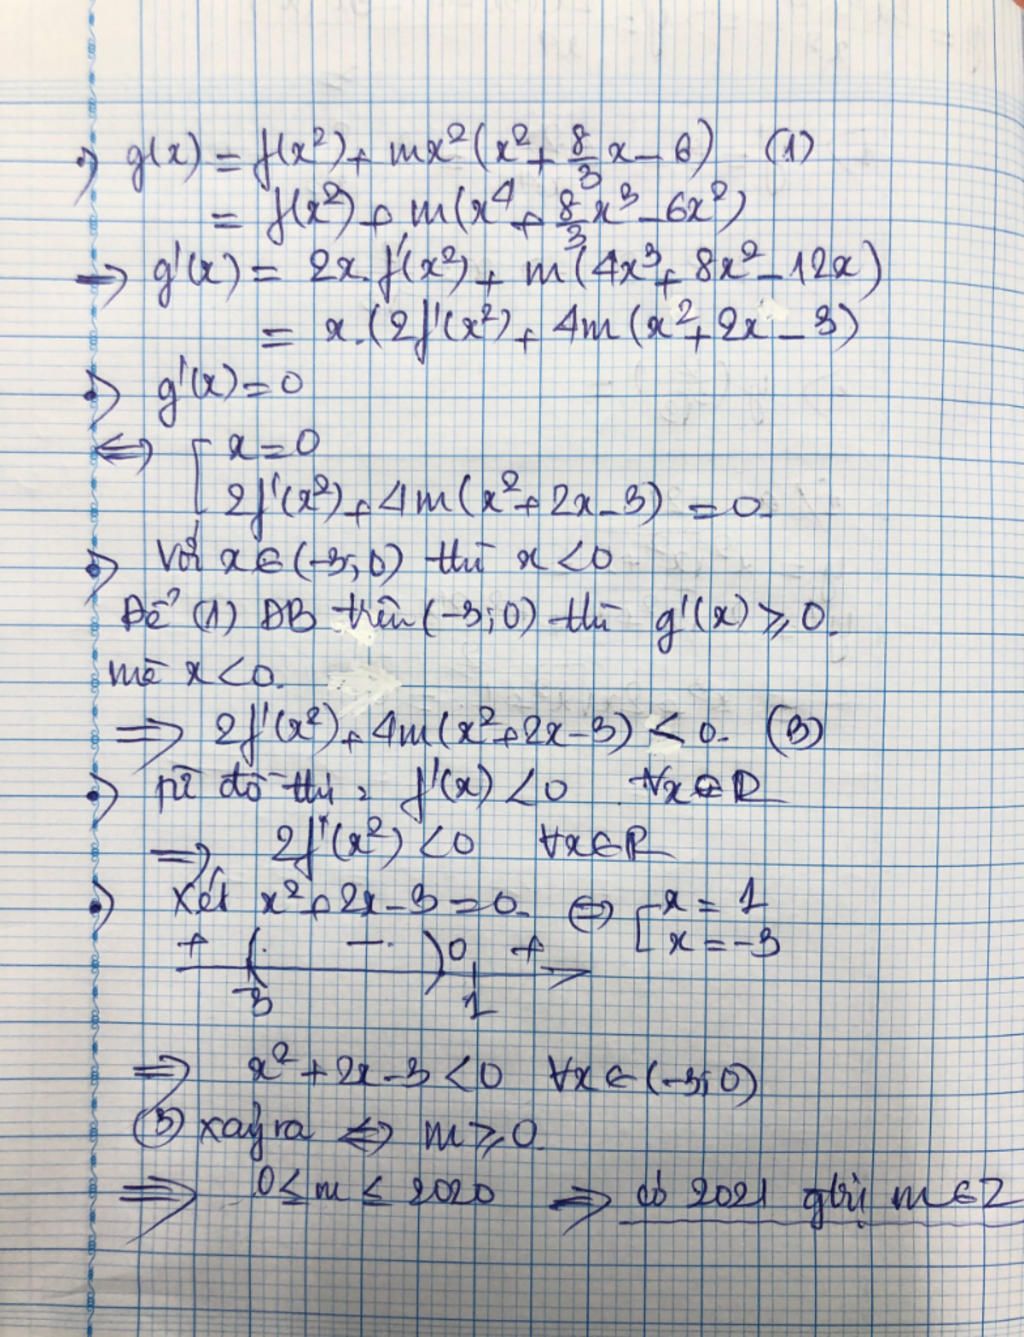 •) g(x) = f(x²) + mx²(x² + 8/3 x - 6) (1)
= f(x²) + m(x⁴ + 8/3 x³ - 6x²)
=> g'(x) = 2x.f'(x²) + m(4x³ + 8x² - 12x)
= x.(2f'(x²) + 4m(x² + 2x - 3)
•) g'(x) = 0
<=> [ x = 0
2f'(x²) + 4m(x² + 2x - 3) = 0.
•) Với x ∈ (-3; 0) thì x < 0
Để (1) ĐB trên (-3; 0) thì g'(x) ⩾ 0.
mà x < 0.
=> 2f'(x²) + 4m(x² + 2x - 3) ≤ 0. (3)
•) từ đồ thị: f'(x) < 0 ∀x ∈ R
=> 2f'(x²) < 0 ∀x ∈ R
•) Xét x² + 2x - 3 = 0. <=> [ x = 1
x = -3
+ ( - ) 0 +
-3 1
=> x² + 2x - 3 < 0 ∀x ∈ (-3; 0)
(3) xảy ra <=> m ⩾ 0.
=> 0 ≤ m ≤ 2020 => có 2021 gtrị m ∈ Z